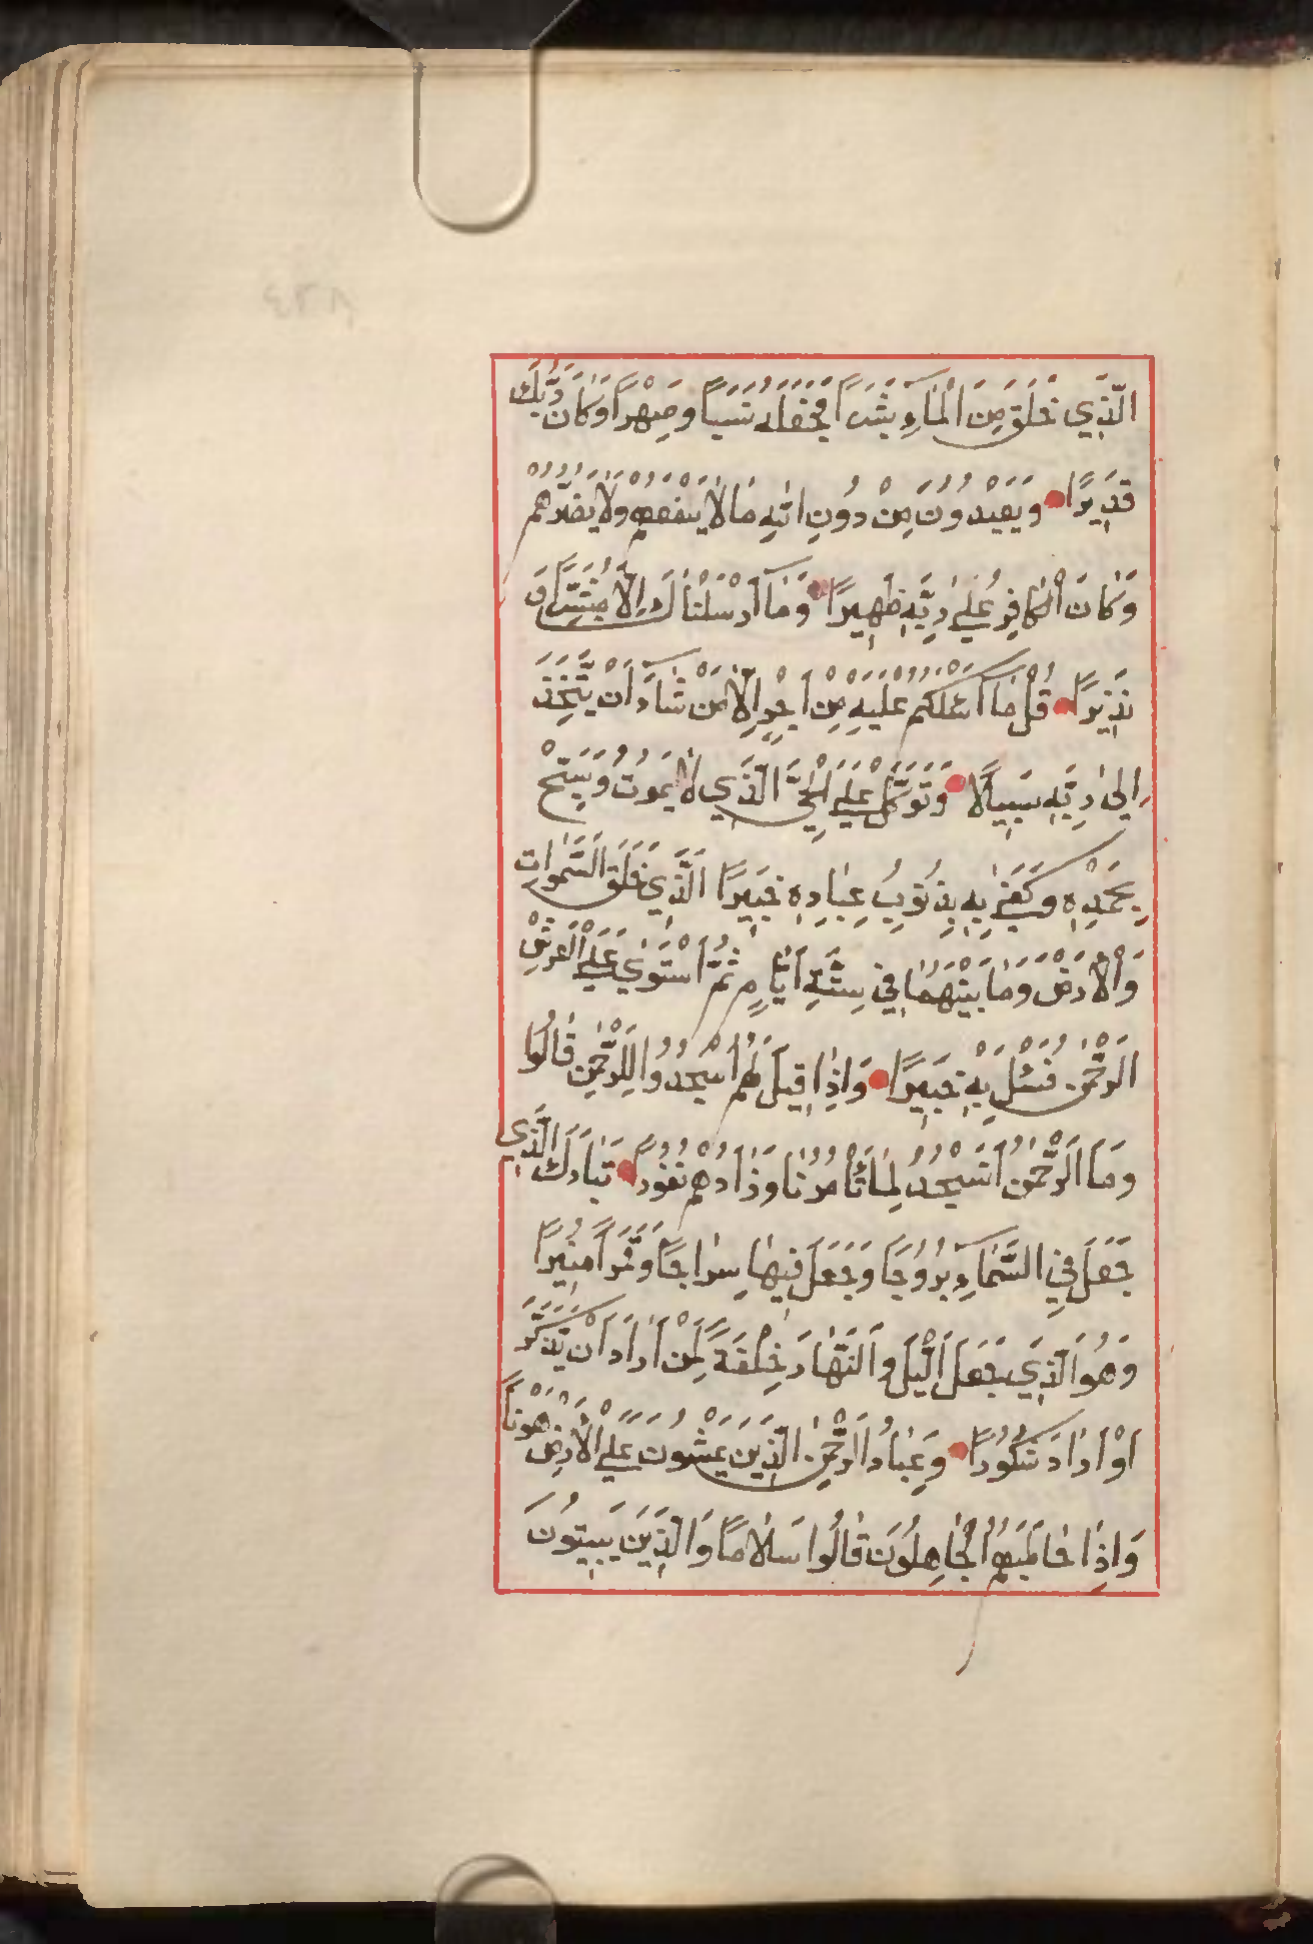 الَّذِي خَلَقَ مِنَ الْمَاءِ بَشَراً فَجَعَلَهُ نَسَباً وَصِهْراً وَكَانَ رَبُّكَ
قَدِيرًا وَيَعْبُدُونَ مِنْ دُونِ اللَّهِ مَا لَا يَنْفَعُهُمْ وَلَا يَضُرُّهُمْ
وَكَانَ الْكَافِرُ عَلَى رَبِّهِ ظَهِيرًا وَمَا أَرْسَلْنَاكَ إِلَّا مُبَشِّرًا وَ
نَذِيرًا قُلْ مَا أَسْئَلُكُمْ عَلَيْهِ مِنْ أَجْرٍ إِلَّا مَنْ شَاءَ أَنْ يَتَّخِذَ
إِلَى رَبِّهِ سَبِيلًا وَتَوَكَّلْ عَلَى الْحَيِّ الَّذِي لَا يَمُوتُ وَسَبِّحْ
بِحَمْدِهِ وَكَفَى بِهِ بِذُنُوبِ عِبَادِهِ خَبِيرًا الَّذِي خَلَقَ السَّمَوَاتِ
وَالْأَرْضَ وَمَا بَيْنَهُمَا فِي سِتَّةِ أَيَّامٍ ثُمَّ اسْتَوَى عَلَى الْعَرْشِ
الرَّحْمَنُ فَسْئَلْ بِهِ خَبِيرًا وَإِذَا قِيلَ لَهُمُ اسْجُدُوا لِلرَّحْمَنِ قَالُوا
وَمَا الرَّحْمَنُ أَنَسْجُدُ لِمَا تَأْمُرُنَا وَزَادَهُمْ نُفُورًا تَبَارَكَ الَّذِي
جَعَلَ فِي السَّمَاءِ بُرُوجًا وَجَعَلَ فِيهَا سِرَاجًا وَقَمَرًا مُنِيرًا
وَهُوَ الَّذِي جَعَلَ اللَّيْلَ وَالنَّهَارَ خِلْفَةً لِمَنْ أَرَادَ أَنْ يَذَّكَّرَ
أَوْ أَرَادَ شُكُورًا وَعِبَادُ الرَّحْمَنِ الَّذِينَ يَمْشُونَ عَلَى الْأَرْضِ هَوْنًا
وَإِذَا خَاطَبَهُمُ الْجَاهِلُونَ قَالُوا سَلَامًا وَالَّذِينَ يَبِيتُونَ